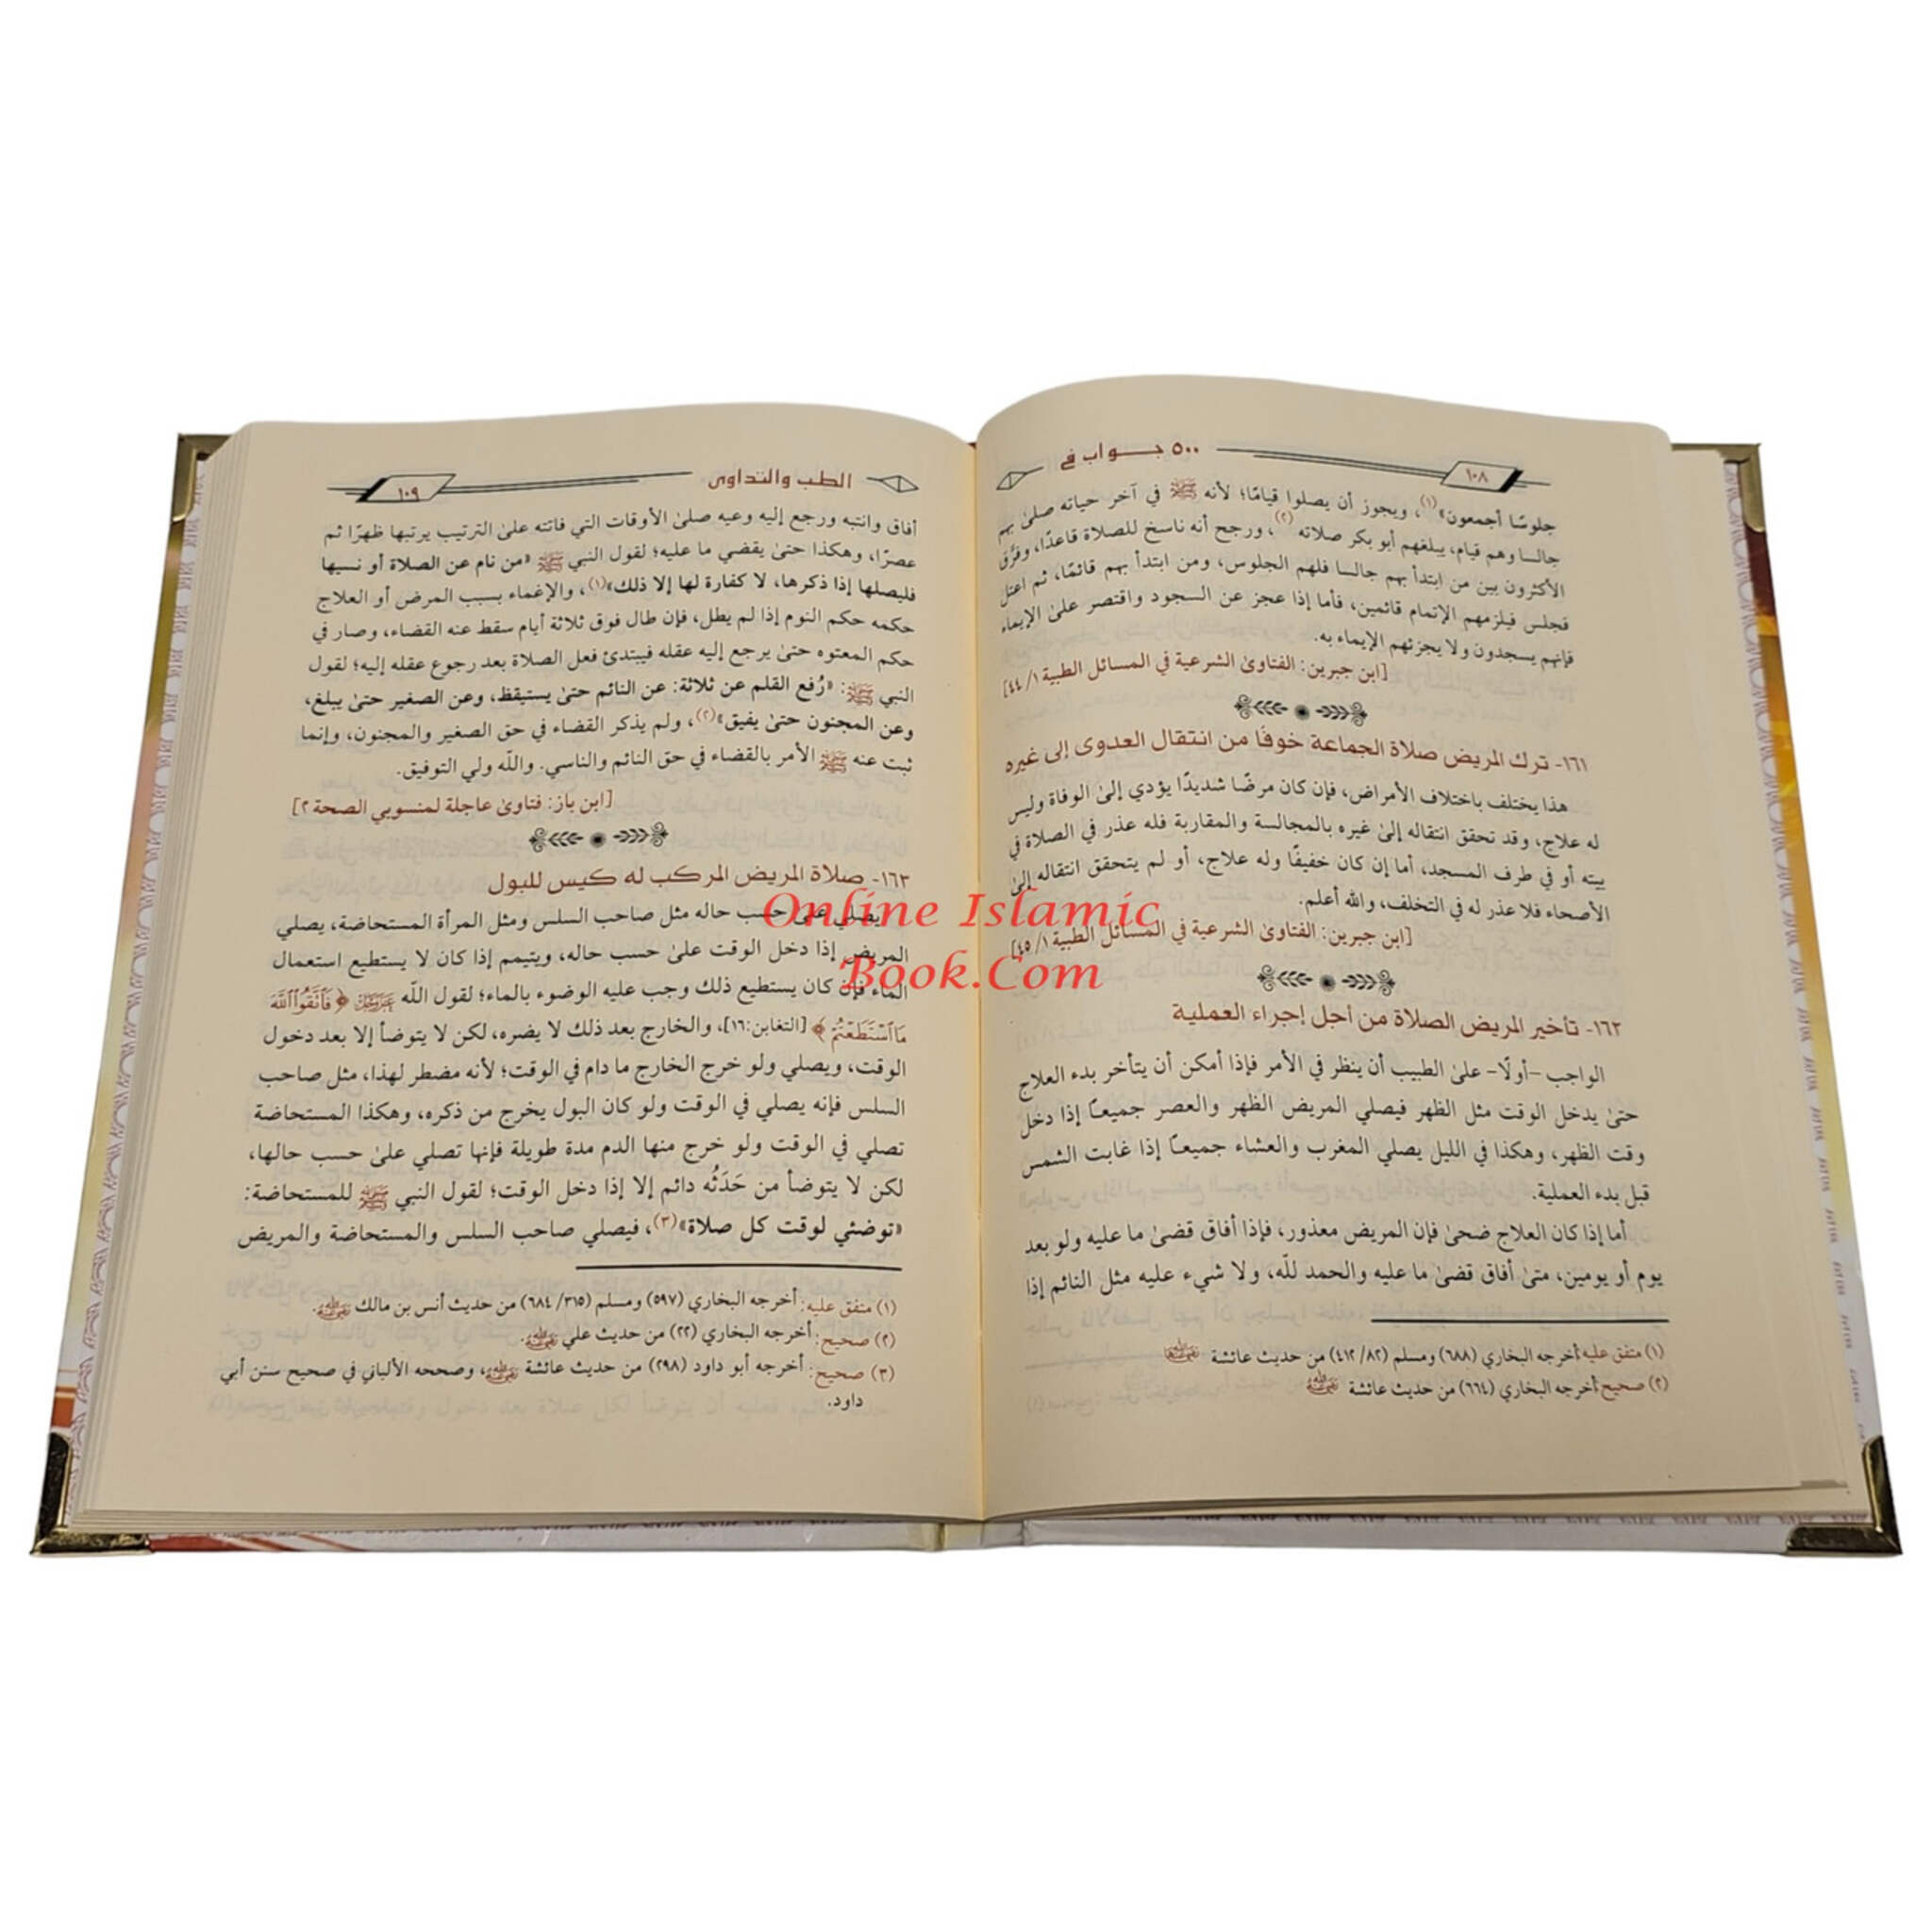 ١٠٨
٥٠٠ جـــواب في
جلوسًا أجمعون»(١)، ويجوز أن يصلوا قيامًا؛ لأنه ﷺ في آخر حياته صلىٰ بهم
جالسا وهم قيام، يبلغهم أبو بكر صلاته(٢)، ورجح أنه ناسخ للصلاة قاعدًا، وفرَّق
الأكثرون بين من ابتدأ بهم جالسا فلهم الجلوس، ومن ابتدأ بهم قائمًا، ثم اعتل
فجلس فيلزمهم الإتمام قائمين، فأما إذا عجز عن السجود واقتصر علىٰ الإيماء
فإنهم يسجدون ولا يجزئهم الإيماء به.
[ابن جبرين: الفتاوىٰ الشرعية في المسائل الطبية ١/ ٤٤]
١٦١- ترك المريض صلاة الجماعة خوفًا من انتقال العدوى إلى غيره
هذا يختلف باختلاف الأمراض، فإن كان مرضًا شديدًا يؤدي إلىٰ الوفاة وليس
له علاج، وقد تحقق انتقاله إلىٰ غيره بالمجالسة والمقاربة فله عذر في الصلاة في
بيته أو في طرف المسجد، أما إن كان خفيفًا وله علاج، أو لم يتحقق انتقاله إلىٰ
الأصحاء فلا عذر له في التخلف، والله أعلم.
[ابن جبرين: الفتاوىٰ الشرعية في المسائل الطبية ١/ ٤٥]
١٦٢- تأخير المريض الصلاة من أجل إجراء العملية
الواجب -أولًا- علىٰ الطبيب أن ينظر في الأمر فإذا أمكن أن يتأخر بدء العلاج
حتىٰ يدخل الوقت مثل الظهر فيصلي المريض الظهر والعصر جميعًا إذا دخل
وقت الظهر، وهكذا في الليل يصلي المغرب والعشاء جميعًا إذا غابت الشمس
قبل بدء العملية.
أما إذا كان العلاج ضحىٰ فإن المريض معذور، فإذا أفاق قضىٰ ما عليه ولو بعد
يوم أو يومين، متىٰ أفاق قضىٰ ما عليه والحمد للّه، ولا شيء عليه مثل النائم إذا
(١) متفق عليه: أخرجه البخاري (٦٨٨) ومسلم (٤١٢/٨٢) من حديث عائشة رضي الله عنها
(٢) صحيح: أخرجه البخاري (٦٦٤) من حديث عائشة رضي الله عنها
الطب والتداوى
١٠٩
أفاق وانتبه ورجع إليه وعيه صلىٰ الأوقات التي فاتته علىٰ الترتيب يرتبها ظهرًا ثم
عصرًا، وهكذا حتىٰ يقضي ما عليه؛ لقول النبي ﷺ «من نام عن الصلاة أو نسيها
فليصلها إذا ذكرها، لا كفارة لها إلا ذلك»(١)، والإغماء بسبب المرض أو العلاج
حكمه حكم النوم إذا لم يطل، فإن طال فوق ثلاثة أيام سقط عنه القضاء، وصار في
حكم المعتوه حتىٰ يرجع إليه عقله فيبتدئ فعل الصلاة بعد رجوع عقله إليه؛ لقول
النبي ﷺ: «رُفع القلم عن ثلاثة: عن النائم حتىٰ يستيقظ، وعن الصغير حتىٰ يبلغ،
وعن المجنون حتىٰ يفيق»(٢)، ولم يذكر القضاء في حق الصغير والمجنون، وإنما
ثبت عنه ﷺ الأمر بالقضاء في حق النائم والناسي. واللّه ولي التوفيق.
[ابن باز: فتاوىٰ عاجلة لمنسوبي الصحة ٢]
١٦٣- صلاة المريض المركب له كيس للبول
يصلي علىٰ حسب حاله مثل صاحب السلس ومثل المرأة المستحاضة، يصلي
المريض إذا دخل الوقت علىٰ حسب حاله، ويتيمم إذا كان لا يستطيع استعمال
الماء فإن كان يستطيع ذلك وجب عليه الوضوء بالماء؛ لقول اللّه عز وجل ﴿فَٱتَّقُوا۟ ٱللَّهَ
مَا ٱسْتَطَعْتُمْ﴾ [التغابن:١٦]، والخارج بعد ذلك لا يضره، لكن لا يتوضأ إلا بعد دخول
الوقت، ويصلي ولو خرج الخارج ما دام في الوقت؛ لأنه مضطر لهذا، مثل صاحب
السلس فإنه يصلي في الوقت ولو كان البول يخرج من ذكره، وهكذا المستحاضة
تصلي في الوقت ولو خرج منها الدم مدة طويلة فإنها تصلي علىٰ حسب حالها،
لكن لا يتوضأ من حَدَثُه دائم إلا إذا دخل الوقت؛ لقول النبي ﷺ للمستحاضة:
«توضئي لوقت كل صلاة»(٣)، فيصلي صاحب السلس والمستحاضة والمريض
(١) متفق عليه: أخرجه البخاري (٥٩٧) ومسلم (٣١٥/ ٦٨٤) من حديث أنس بن مالك رضي الله عنه.
(٢) صحيح: أخرجه البخاري (٢٢) من حديث علي رضي الله عنه.
(٣) صحيح: أخرجه أبو داود (٢٩٨) من حديث عائشة رضي الله عنها، وصححه الألباني في صحيح سنن أبي
داود.
Online Islamic
Book.Com